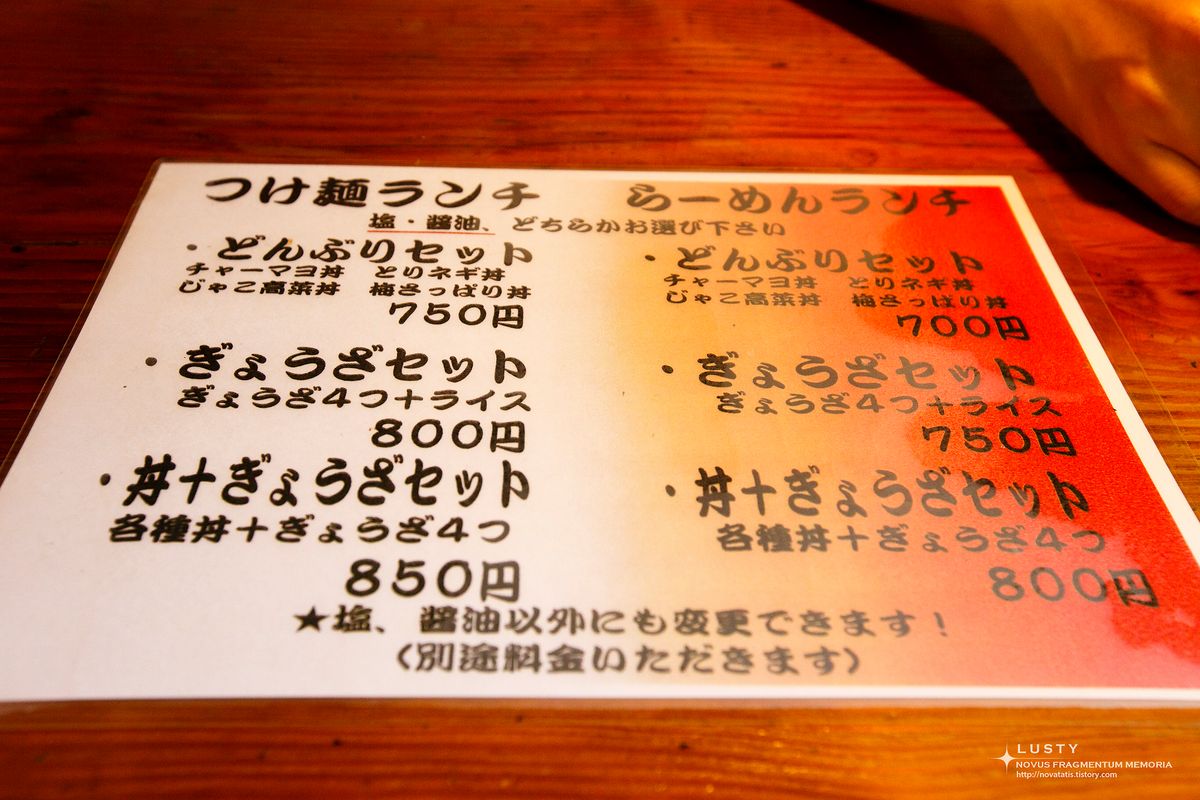 つけ麺ランチ
らーめんランチ
塩・醤油、どちらかお選び下さい
・どんぶりセット
チャーマヨ丼 とりネギ丼
じゃこ高菜丼 梅さっぱり丼
750円
・ぎょうざセット
ぎょうざ4つ+ライス
800円
・丼+ぎょうざセット
各種丼+ぎょうざ4つ
850円
・どんぶりセット
チャーマヨ丼 とりネギ丼
じゃこ高菜丼 梅さっぱり丼
700円
・ぎょうざセット
ぎょうざ4つ+ライス
750円
・丼+ぎょうざセット
各種丼+ぎょうざ4つ
800円
★塩、醤油以外にも変更できます!
(別途料金いただきます)
LUSTY
NOVUS FRAGMENTUM MEMORIA
http://novatatis.tistory.com